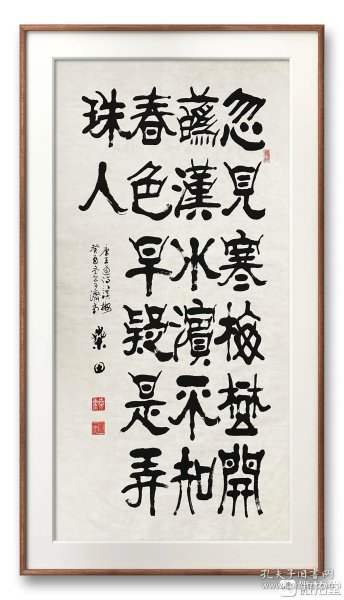 忽見寒梅樹開
蘤漢水濱不知
春色早疑是弄
珠人
唐王適詩
癸酉
田
孔夫子旧书网